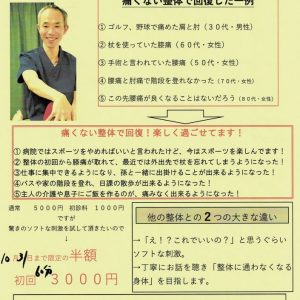 痛くない整体で回復した一例
① ゴルフ、野球で痛めた肩と肘（３０代・男性）
② 杖を使っていた腰痛（６０代・女性）
③ 手術と言われていた腰痛（５０代・女性）
④ 腰痛と肘痛で階段を登れなかった（７０代・女性）
⑤ この先腰痛が良くなることはないだろう（８０代・女性）
痛くない整体で回復！楽しく過ごせてます！
①病院ではスポーツをやめればいいと言われたけど、今はスポーツを楽しんでます！
②整体の初回から腰痛が取れて、最近では外出先で杖を忘れてしまうようになった！
③仕事に集中できるようになり、孫と一緒に出掛けることが出来るようになった！
④バスや家の階段を登れ、日課の散歩が出来るようになった！
⑤主人の介護や息子にご飯を作るのが、痛みなく出来るようになった！
通常　５０００円　初診料　１０００円
ですが
驚きのソフトな刺激を試して頂きたいので
↓
10月31日まで限定の半額
初回 3０００円
他の整体との２つの大きな違い
→「え！？これでいいの？」と思うぐらい
ソフトな刺激。
→丁寧にお話を聴き「整体に通わなくなる
身体」を目指します。